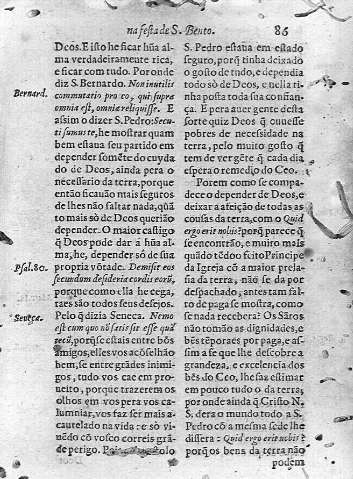 na festa de S. Bento. 86
Deos. E isso he ficar hũa al-
ma verdadeiramente rica,
e ficar com tudo. Por onde
diz S. Bernardo. Non inutilis
commutatio pro eo, qui supra
omnia est, omnia reliquisse. E
assim o dizer S. Pedro: Secu-
ti sumus te, he mostrar quam
bem estaua seu partido em
depender somẽte do cuyda
do de Deos, ainda pera o
necessario da terra, porque
então ficauão mais seguros
de lhes não faltar nada, quã
to mais só de Deos querião
depender. O maior castigo
q̃ Deos pode dar a hũa al-
ma, he, depender só de sua
propria võtade. Demisit eos
secundum desideria cordis eorũ,
porque como ella he cega,
taes são todos seus desejos.
Pelo q̃ dizia Seneca. Nemo
est cum quo nõ satis sit esse quã
tecũ, porq̃ se estais entre bõs
amigos, elles vos acõselhão
hem, se entre grãdes inimi-
gos, tudo vos cae em pro-
ueito, porque trazerem os
olhos em vos pera vos ca-
lumniar, vos faz ser mais a
cautelado na vida: e só vi-
uẽdo cõ vosco correis grã
de perigo.
Bernard.
Psal. 80.
Seneca.
S. Pedro estaua em estado
seguro, porq̃ tinha deixado
o gosto de tudo, e dependia
todo só de Deos, e nelle ti
nha posta toda sua confian
ça. E pera auer gente desta
sorte quiz Deos q̃ ouuesse
pobres de necessidade na
terra, pelo muito gosto q̃
tem de ver gẽte q̃ cada dia
espera o remedio do Ceo.
Porem como se compa-
dece o depender de Deos, e
deixar a afeição de todas as
cousas da terra, com o Quid
ergo erit nobis? porq̃ parece q̃
se encontrão, e muito mais
quãdo tẽdoo feito Principe
da Igreja cõ a maior prela-
sia da terra, não se da por
despachado, antes tam fal-
to de paga se mostra, como
se nada recebera? Os Sãtos
não tomão as dignidades, e
bẽs tẽporaes por paga, e as-
sim a se que lhe descobre a
grandeza, e excelencia dos
bẽs do Ceo, lhe faz estimar
em pouco tudo o da terra,
por onde ainda q̃ Cristo N.
S. dera o mundo todo a S.
Pedro cõ a mesma sede lhe
dissera: Quid ergo erit nobis?
porq̃ os bens da terra não
podem